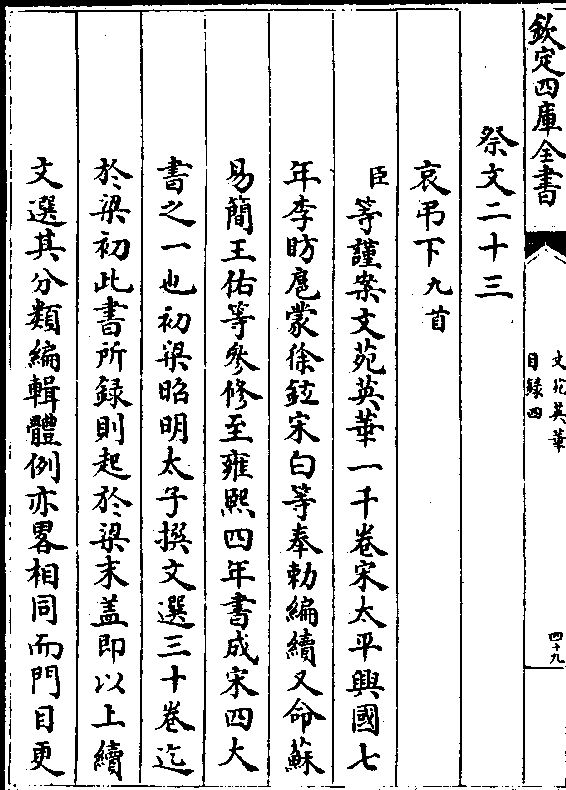 欽定四庫全書
文苑英華
目録四
四十九
祭文二十三
哀弔下九首
臣等謹案文苑英華一千卷宋太平興國七
年李昉扈蒙徐鉉宋白等奉勅編續又命蘇
易簡王佑等參修至雍熙四年書成宋四大
書之一也初梁昭明太子撰文選三十卷迄
於梁初此書所録則起於梁末盖即以上續
文選其分類編輯體例亦畧相同而門目更